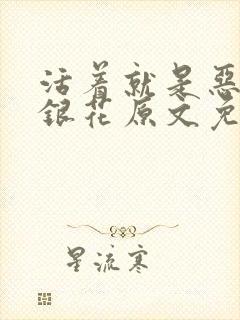 活着就是恶
銀花原文免
星流寒